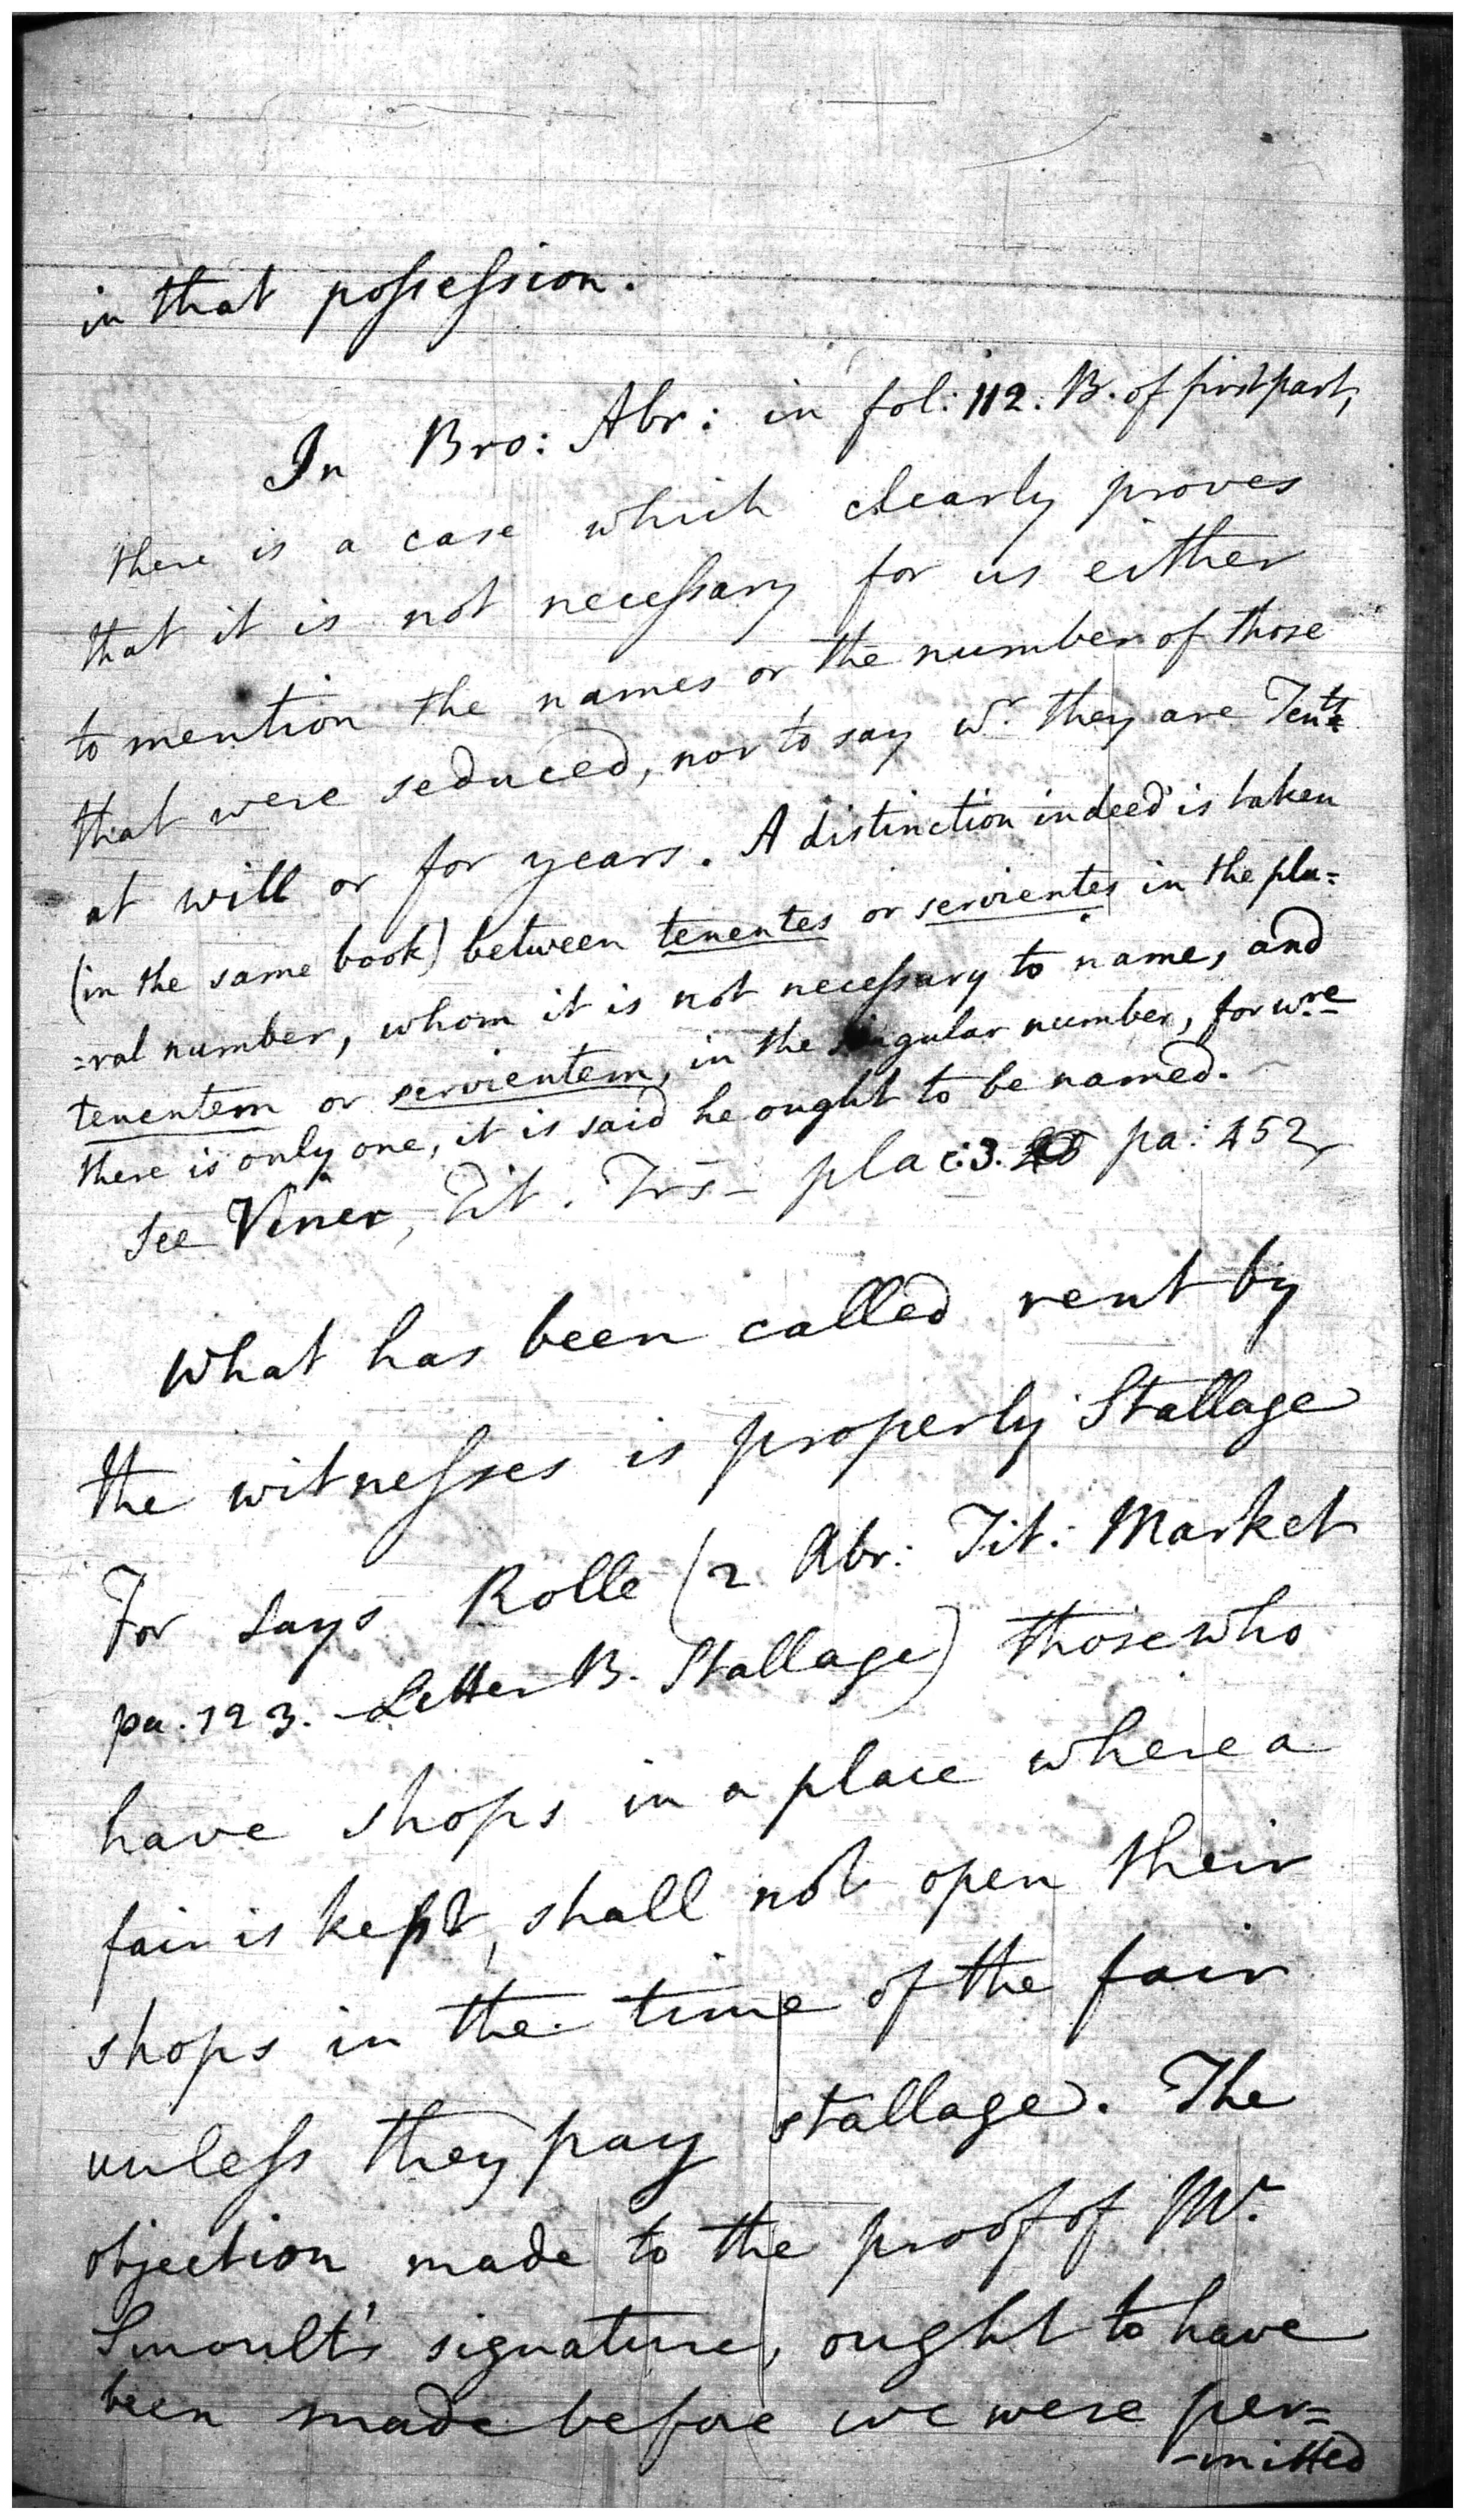 in that possession.
In Bro: Abr: in fol: 112. B. of first part,
there is a case which clearly proves
that it is not necessary for us either
to mention the names or the number of those
that were seduced, nor to say wr. they are Tents
at will or for years. A distinction indeed is taken
(in the same book) between tenentes or servientes in the plu=
=ral number, whom it is not necessary to name, and
tenentem or servientem, in the singular number, for wre
there is only one, it is said he ought to be named.
See Viner, Tit. Trs- plac: 3. pa: 452,
What has been called rent by
the witnesses is properly Stallage
For says Rolle (2 Abr: Tit: Market
pa. 123. Letter B. Stallage) those who
have shops in a place where a
fair is kept, shall not open their
shops in the time of the fair
unless they pay stallage. The
objection made to the proof of Mr.
Smoult's signature, ought to have
been made before we were per=
-mitted